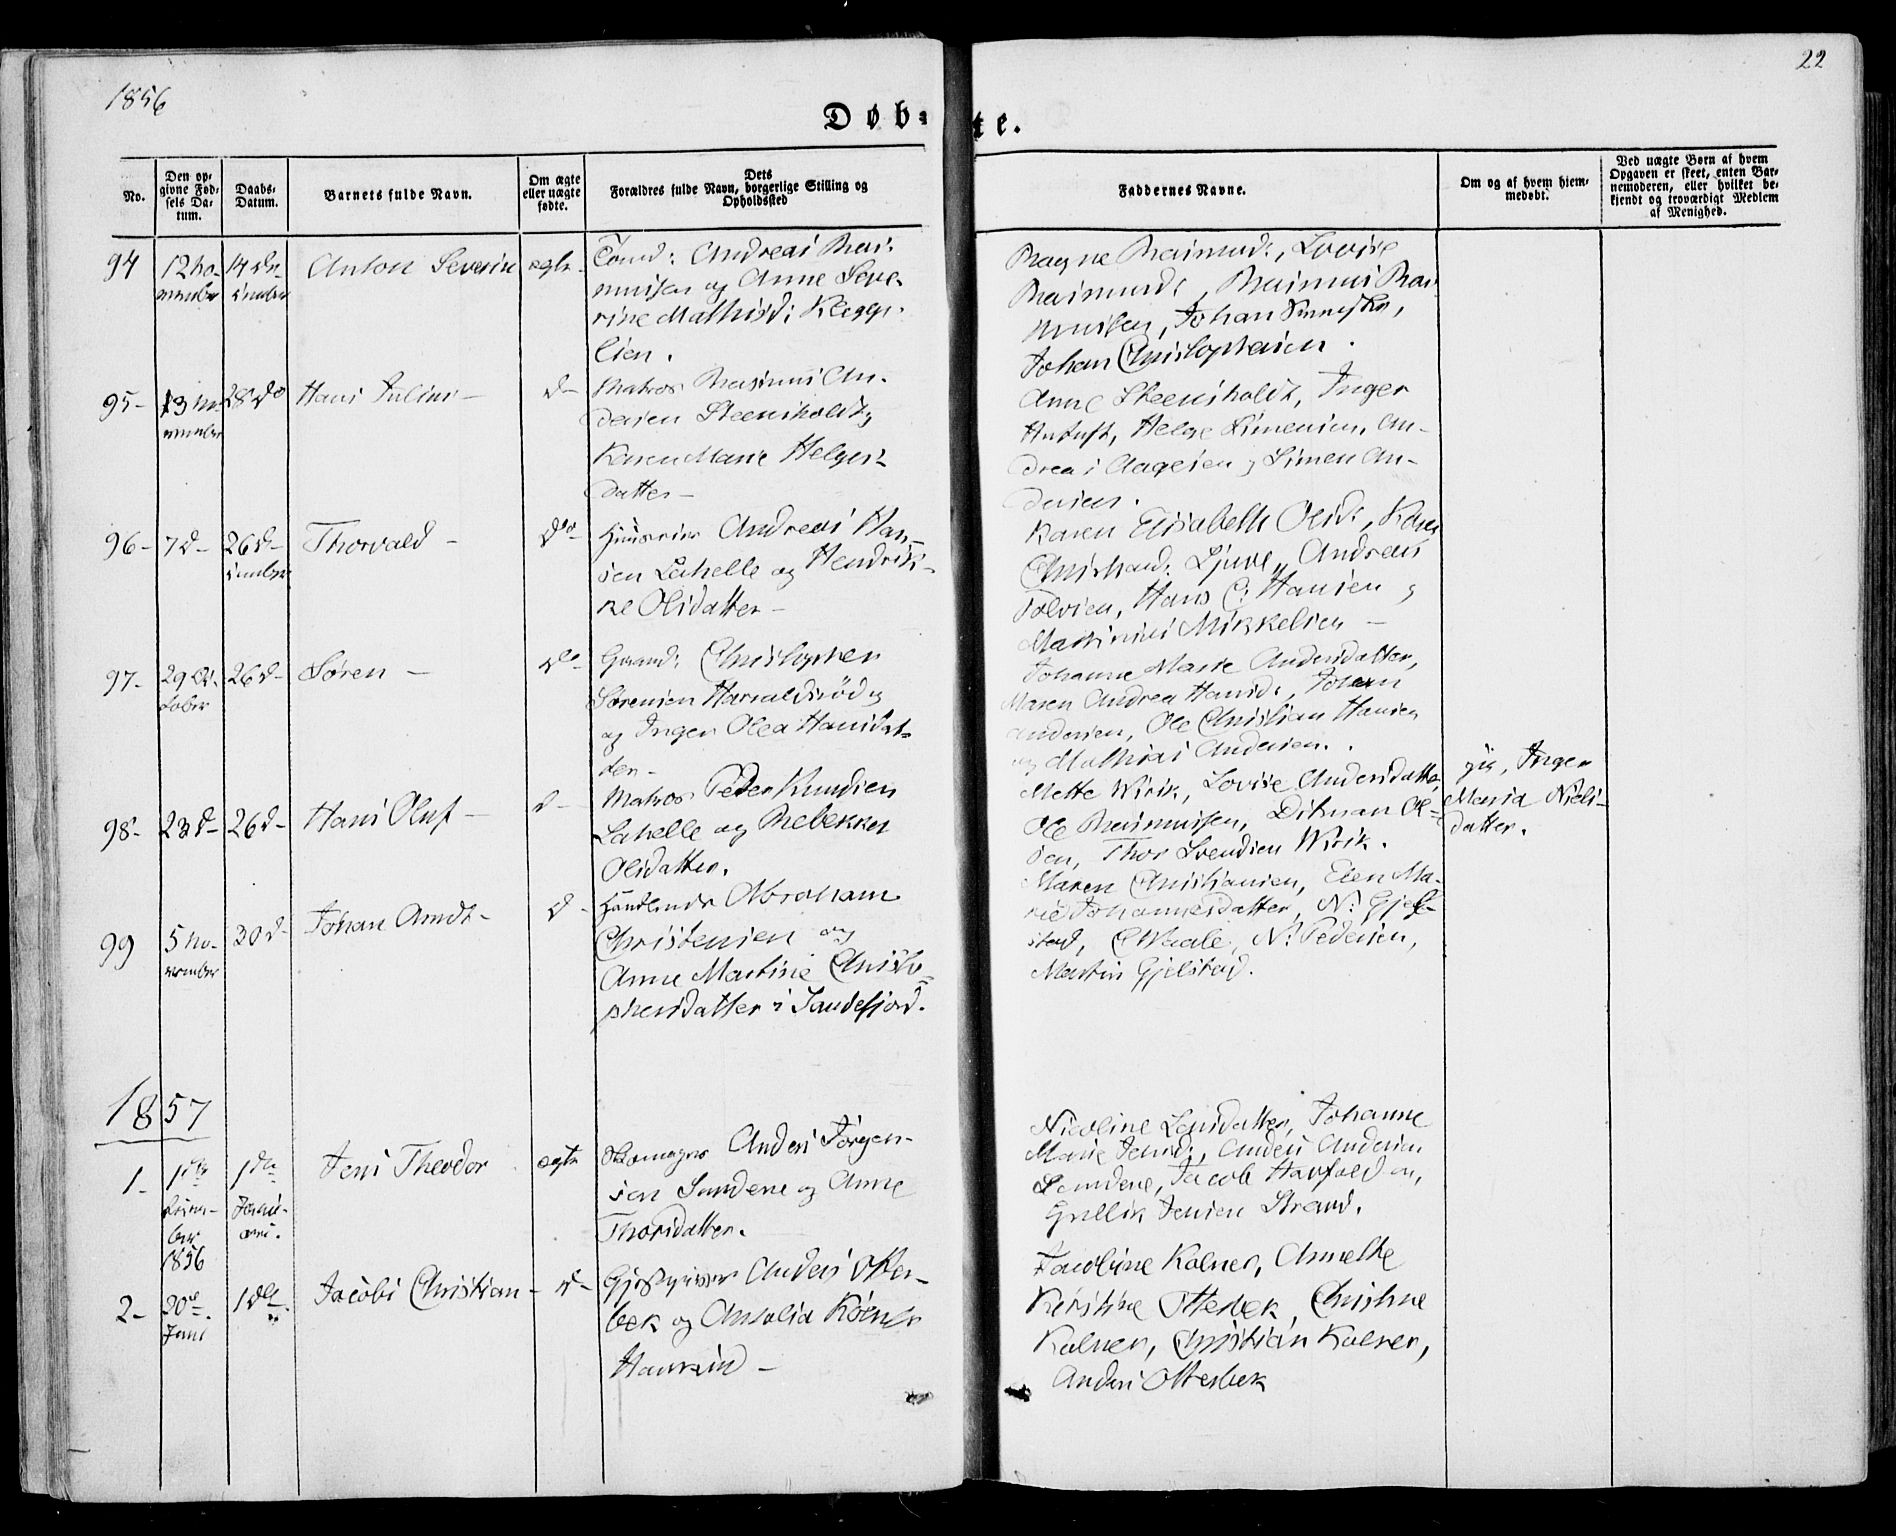 1856
22
Døb=te.
No.
Den op-
givne Fød-
sels Da-
tum.
Daabs-
Datum.
Barnets fulde Navn.
Om ægte
eller uægte
fødte.
Dets
Forældres fulde Navn, borgerlige Stilling og
Opholdssted
Faddernes Navne.
Om og af hvem hjem-
medøbt.
Ved uægte Børn af hvem
Opgaven er skeet, enten Bar-
nemoderen, eller hvilket be-
kjendt og troværdigt Medlem
af Menighed.
94
12 No-
vember
14 De-
cember
Anton Severin
ægte
Tømd: Andreas Ras-
mussen og Anne Seve-
rine Mathisd:
lien.
Ragne Rasmusd:, Lovise
Rasmusd:, Rasmus Ras-
mussen, Johan
Johan Christophersen.
95-
13 No-
vember
28 do
Hans Julius-
d-
Matros Rasmus An-
dersen Steensholdt og
Karen Marie Helges-
datter-
Anne Steensholdt, Inger
Helge Simensen, An-
dreas Aagesen og Simen An-
dersen.
96-
7 d-
26 d-
cember
Thorvald-
do-
Huusmand Andreas Han-
sen Lahelle og Hendrik-
ke Olsdatter-
Karen Elisabeth Olsd:, Karen
Christiansd: Andreas
Hans C: Hansen og
Martinius Mikkelsen-
97-
29 Ok-
tober
26 d-
Søren-
do-
Gaard: Christopher
Sørensen Haraldsrød
og Inger Olea Hansdat-
ter-
Johanne Marie Andersdatter,
Maren Andrea Hansd:, Johan
Andersen, Ole Christian Hansen
og Mathias Andersen.
98-
23 d-
26 d-
Hans Oluf-
d-
Matros Peder Knudsen
Lahelle og Rebekka
Olsdatter.
Mette Wirik, Lovise Andersdatter,
Ole Rasmussen, Ditman Ol-
sen, Thor Svendsen Wirik.
Inger
Maria Niels-
datter.
99
5 No-
vember
30 d-
Johan Arndt-
d-
Handlende Abraham
Christensen og
Anne Martine Christo-
phersdatter i Sandefjord.
Maren Christiansen, Elen Ma-
rie Johannesdatter, N: Gjel-
stad, C Waale, N: Pedersen,
Martin Gjelstad.
1857
1-
1ste
Decem-
ber
1856
1ste
Janu-
ari.
Jens Theodor
ægte
Skomager Anders Jørgen-
sen Sundene og Anne
Thorsdatter.
Nicoline Larsdatter, Johanne
Marie Jensd:, Anders Andersen
Sundene, Jacob
Gullik Jensen Strand.
2-
30te
Juni
1ste
Jacobi Christian-
d-
Gjestgiver Anders Otter-
bek og Antolia
Jacobine Kolner, Annette
Kristine Otterbek, Christine
Kolner, Christian Kolner,
Anders Otterbek